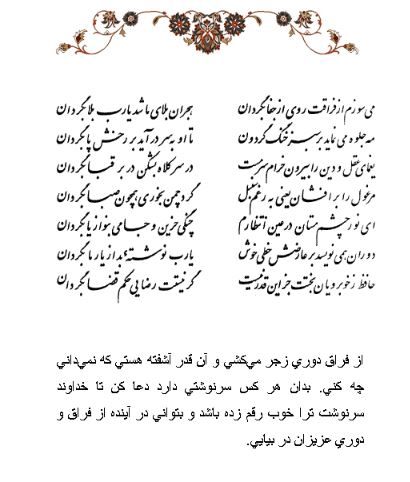 می سوزم از فراقت روی از جفا بگردان هجران بلای ما شد یارب بلا بگردان
مه جلوه می نماید بر سبز خنگ گردون تا او به سر در آید بر رخش پا بگردان
یغمای عقل و دین را بیرون خرام سرمست در سر کلاه بشکن در بر قبا بگردان
مرغول را برافشان یعنی به رغم سنبل گرد چمن بخوری همچون صبا بگردان
ای نور چشم مستان در عین انتظارم چنگی حزین و جامی بنواز یا بگردان
دوران همی نویسد بر عارضش خطی خوش یارب نوشته بد از یار ما بگردان
حافظ ز خوبرویان بختت جز این قدر نیست گر نیستت رضایی حکم قضا بگردان
از فراق دوري زجر مي‌كشي و آن قدر آشفته هستي كه نمي‌داني
چه كني. بدان هر كس سرنوشتي دارد دعا كن تا خداوند
سرنوشت ترا خوب رقم زده باشد و بتواني در آينده از فراق و
دوري عزيزان در بيايي.